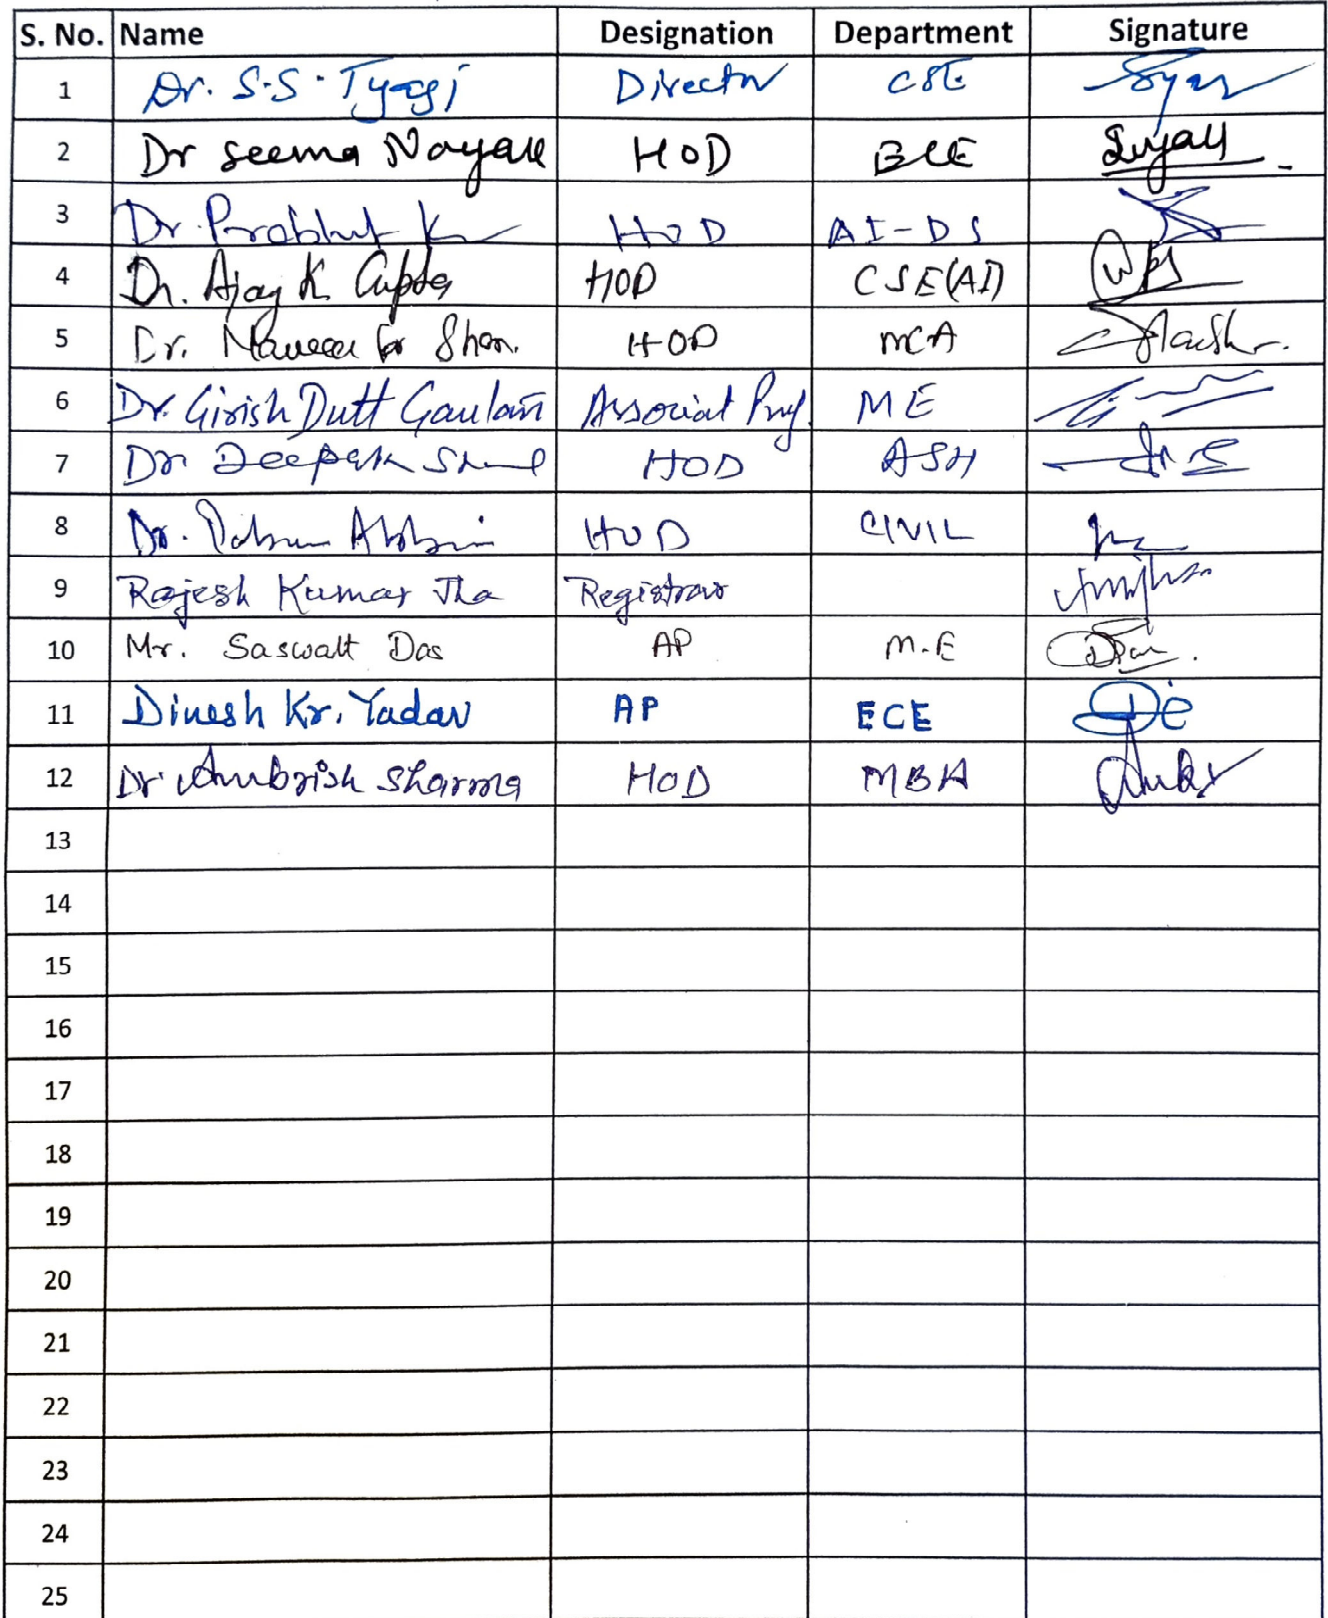 S. No. Name Designation Department Signature
1 Dr. S.S. Tyagi Director CSE
2 Dr Seema Nayak HOD ECE
3 Dr. Prabhat K HOD AI-DS
4 Dr. Ajay K Gupta HOD CSE(AI)
5 Dr. Naveen HOD MCA
6 Dr. Girish Dutt Gautam Associat Prof. ME
7 Dr. Deepak HOD ASH
8 Dr. HOD CIVIL
9 Rajesh Kumar Jha Registrar
10 Mr. Saswatt Das AP M.E
11 Dinesh Kr. Yadav AP ECE
12 Dr. Ambrish Sharma HOD MBA
13
14
15
16
17
18
19
20
21
22
23
24
25